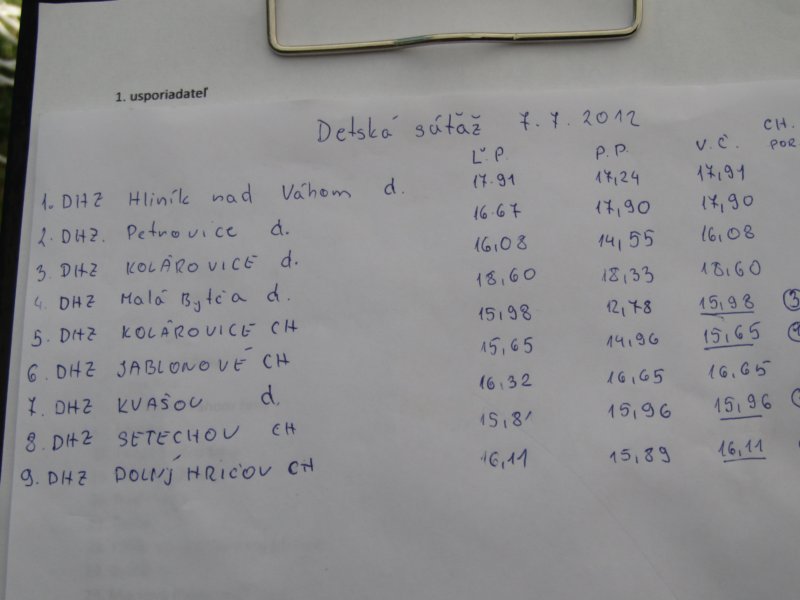 1. usporiadateľ
Detská súťaž 7.7.2012
Ľ.P. P.P. V.Č. CH. POR
1. DHZ Hliník nad Váhom d. 17.91 17,24 17,91
2. DHZ. Petrovice d. 16.67 17,90 17,90
3. DHZ KOLÁROVICE d. 16,08 14,55 16,08
4. DHZ Malá Bytča d. 18,60 18,33 18,60
5. DHZ KOLÁROVICE CH 15,98 12,78 15,98 3
6. DHZ JABLONOVÉ CH 15,65 14,96 15,65
7. DHZ KVAŠOV d. 16,32 16,65 16,65
8. DHZ SETECHOV CH 15,81 15,96 15,96
9. DHZ DOLNÝ HRIČOV CH 16,11 15,89 16,11